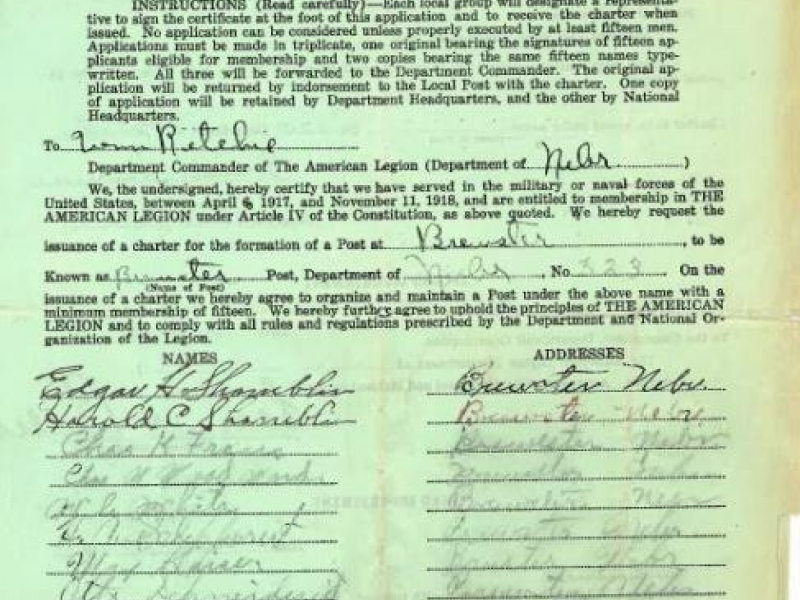 INSTRUCTIONS (Read carefully)—Each local group will designate a representa-
tive to sign the certificate at the foot of this application and to receive the charter when
issued. No application can be considered unless properly executed by at least fifteen men.
Applications must be made in triplicate, one original bearing the signatures of fifteen ap-
plicants eligible for membership and two copies bearing the same fifteen names type-
written. All three will be forwarded to the Department Commander. The original ap-
plication will be returned by indorsement to the Local Post with the charter. One copy
of application will be retained by Department Headquarters, and the other by National
Headquarters.
To Ritchie
Department Commander of The American Legion (Department of Nebr. )
We, the undersigned, hereby certify that we have served in the military or naval forces of the
United States, between April 6 1917, and November 11, 1918, and are entitled to membership in THE
AMERICAN LEGION under Article IV of the Constitution, as above quoted. We hereby request the
issuance of a charter for the formation of a Post at Brewster , to be
Known as Brewster Post, Department of Nebr , No. 323 On the
(Name of Post)
issuance of a charter we hereby agree to organize and maintain a Post under the above name with a
minimum membership of fifteen. We hereby further agree to uphold the principles of THE AMERICAN
LEGION and to comply with all rules and regulations prescribed by the Department and National Or-
ganization of the Legion.
NAMES ADDRESSES
Edgar H Shamblin Brewster Nebr.
Harold C Shamblin Brewster Nebr
Chas Brewster Nebr